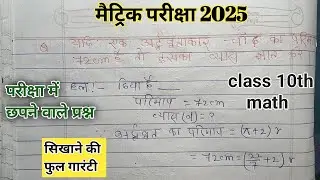 मैट्रिक परीक्षा 2025
यदि एक अर्द्धवृत्ताकार चाँद का परि
72cm है तो इसका व्यास ज्ञात करें
परीक्षा में
छपने वाले प्रश्न
हल:- दिया है
परिमाप = 72cm
व्यास (d) = ?
class 10th
math
∵ अर्द्धवृत्त का परिमाप = (π+2) r
सिखाने की
फुल गारंटी
= 72cm = (22/7 + 2) r